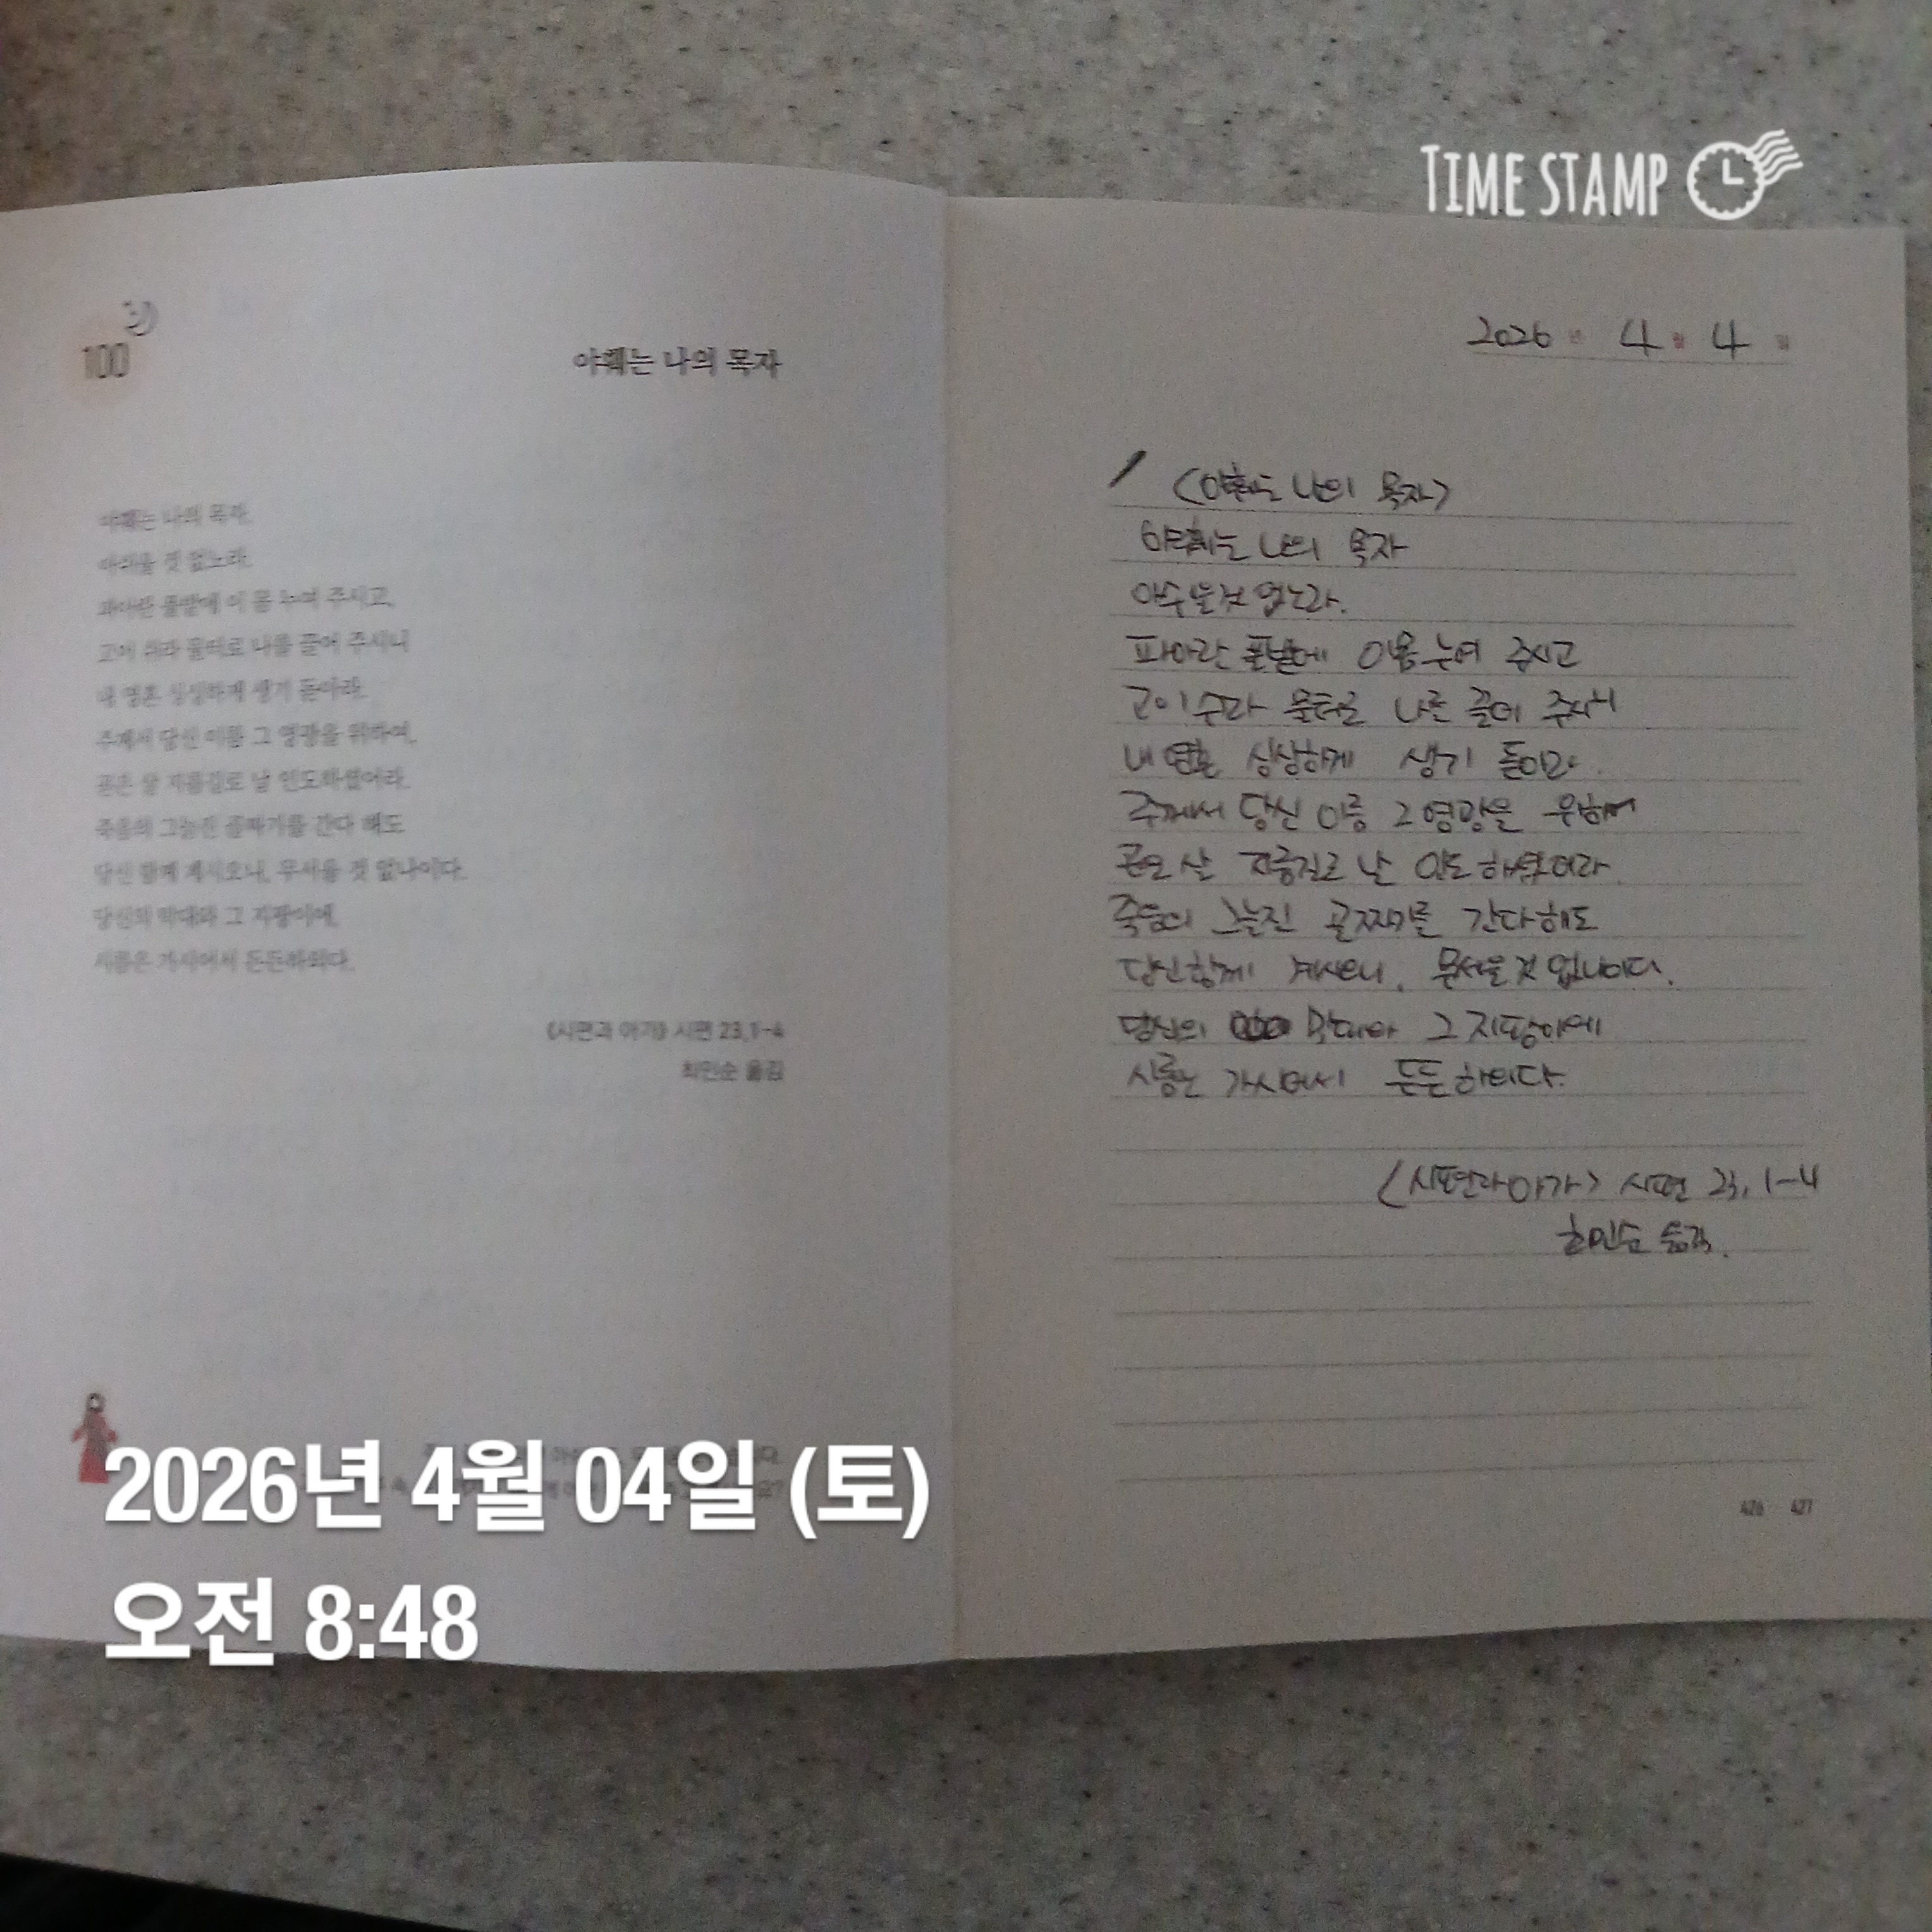 TIME STAMP
100
야훼는 나의 목자
야훼는 나의 목자,
아쉬울 것 없노라.
파아란 풀밭에 이 몸 누여 주시고,
고이 쉬라 물터로 나를 끌어 주시니
내 영혼 싱싱하게 생기 돋아라.
주께서 당신 이름 그 영광을 위하여,
곧은 살 지름길로 날 인도하셨어라.
죽음의 그늘진 골짜기를 간다 해도
당신 함께 계시오니, 무서울 것 없나이다.
당신의 막대와 그 지팡이에,
시름은 가시어서 든든하외다.
《시편과 아가》 시편 23,1-4
최민순 옮김
2026년 4월 4일
<야훼는 나의 목자>
야훼는 나의 목자
아쉬울것 없노라.
파아란 풀밭에 이몸 누여 주시고
고이 쉬라 물터로 나를 끌어 주시니
내 영혼 싱싱하게 생기 돋아라.
주께서 당신 이름 그 영광을 위하여
곧은 살 지름길로 날 인도하셨어라.
죽음의 그늘진 골짜기를 간다해도
당신함께 계시오니, 무서울것 없나이다.
당신의 막대와 그 지팡이에
시름은 가시어서 든든하외다.
<시편과아가> 시편 23, 1-4
최민순 옮김.
426 427
2026년 4월 04일 (토)
오전 8:48